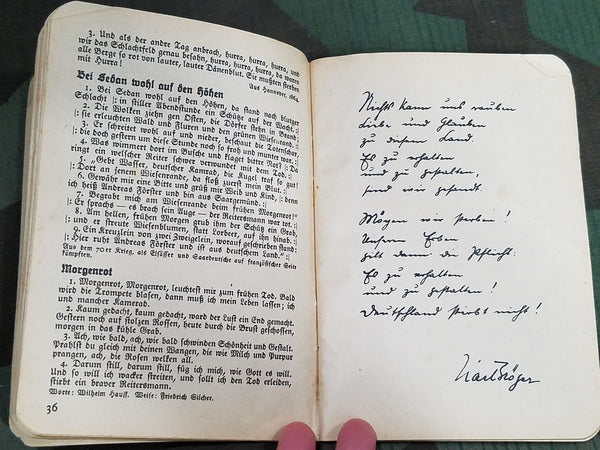 3. Und als der andre Tag anbrach, hurra, hurra, hurra, und
wir das Schlachtfeld genau besahn, hurra, hurra, hurra, da waren
alle Berge so rot von lauter, lauter Dänenblut. Sie mußten sterben
mit Hurra!
Aus Hannover, 1864.
Bei Sedan wohl auf den Höhen
1. Bei Sedan wohl auf den Höhen, da stand nach blutger
Schlacht |: in stiller Abendstunde ein Schütze auf der Wacht. :|
2. Die Wolken ziehn gen Osten, die Dörfer stehn in Brand;
|: sie erleuchten Wald und Fluren und den grünen Wiesenrand. :|
3. Er schreitet wohl auf und nieder, beschaut die Totenschar,
|: die doch gestern um diese Stunde noch so froh und munter war. :|
4. Was wimmert dort im Busche und klagt bitter Not? |: Da
ringt ein welscher Reiter schwer verwundet mit dem Tod. :|
5. „Gebt Wasser, deutscher Kamrad, die Kugel traf so gut!
|: Dort an jenem Wiesenrande, da floß zuerst mein Blut. :|
6. Gewähr mir eine Bitte und grüß mir Weib und Kind, |: denn
ich heiß Andreas Förster und bin aus Saargemünd. :|
7. Begrabt mich am Wiesenrande beim frühen Morgenrot!"
|: Er sprachs — es brach sein Auge — der Reitersmann war tot. :|
8. Am hellen, frühen Morgen grub ihm der Schütz ein Grab,
|: und er streute Wiesenblumen, statt Lorbeer, auf ihn hinab. :|
9. Ein Kreuzlein von zwei Zweiglein, worauf geschrieben stand:
|: „Hier ruht Andreas Förster und ist aus deutschem Land." :|
Aus dem 70er Krieg, als Elsässer und Saardeutsche auf französischer Seite
kämpften.
Morgenrot
1. Morgenrot, Morgenrot, leuchtest mir zum frühen Tod. Bald
wird die Trompete blasen, dann muß ich mein Leben lassen; ich
und mancher Kamerad.
2. Kaum gedacht, kaum gedacht, ward der Lust ein End gemacht.
Gestern noch auf stolzen Rossen, heute durch die Brust geschossen,
morgen in das kühle Grab.
3. Ach, wie bald, ach, wie bald schwinden Schönheit und Gestalt.
Prahlst du gleich mit deinen Wangen, die wie Milch und Purpur
prangen, ach, die Rosen welken all.
4. Darum still, darum still, füg ich mich, wie Gott es will.
Und so will ich wacker streiten, und sollt ich den Tod erleiden,
stirbt ein braver Reitersmann.
Worte: Wilhelm Hauff. Weise: Friedrich Silcher.
36
Nichts kann uns rauben
Liebe und Glauben
zu diesem Land.
Es zu erhalten
und zu gestalten,
sind wir gesandt.
Mögen wir sterben!
Unseren Erben
gilt dann die Pflicht:
Es zu erhalten
und zu gestalten!
Deutschland stirbt nicht!
Karl Bröger